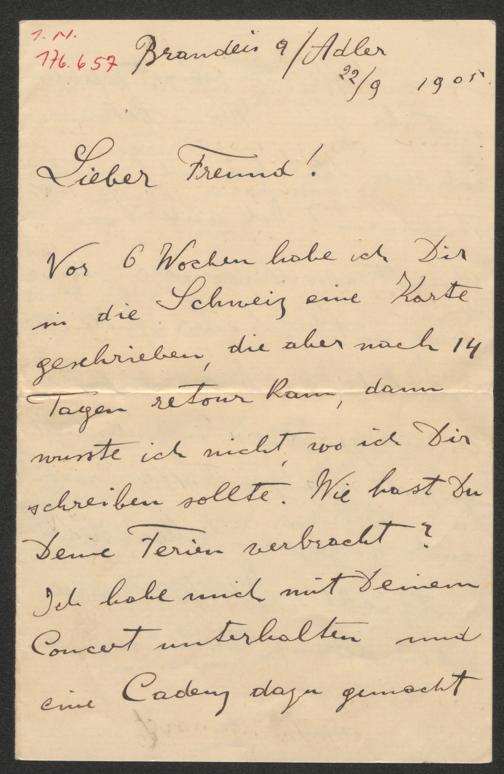 I. N.
176.657
Brandeis a/Adler
22/9 1905
Lieber Freund!
Vor 6 Wochen habe ich Dir
in die Schweiz eine Karte
geschrieben, die aber nach 14
Tagen retour kam, dann
wusste ich nicht, wo ich Dir
schreiben sollte. Wie hast Du
Deine Ferien verbracht?
Ich habe mich mit Deinem
Concert unterhalten und
eine Cadenz dazu gemacht